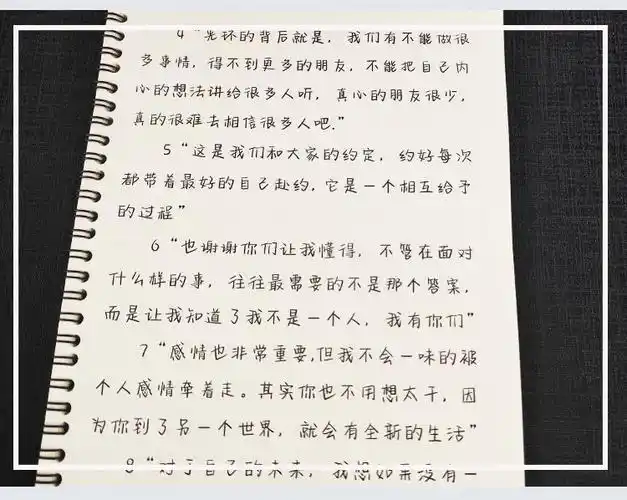 4 “光环的背后就是，我们有不能做很
多事情，得不到更多的朋友，不能把自己内
心的想法讲给很多人听，真心的朋友很少，
真的很难去相信很多人吧.”
5 “这是我们和大家的约定，约好每次
都带着最好的自己赴约，它是一个相互给予
的过程”
6 “也谢谢你们让我懂得，不管在面对
什么样的事，往往最需要的不是那个答案，
而是让我知道了我不是一个人，我有你们”
7 “感情也非常重要,但我不会一味的被
个人感情牵着走。其实你也不用想太干，因
为你到了另一个世界，就会有全新的生活”
8 “对于自己的未来，我想如果没有一